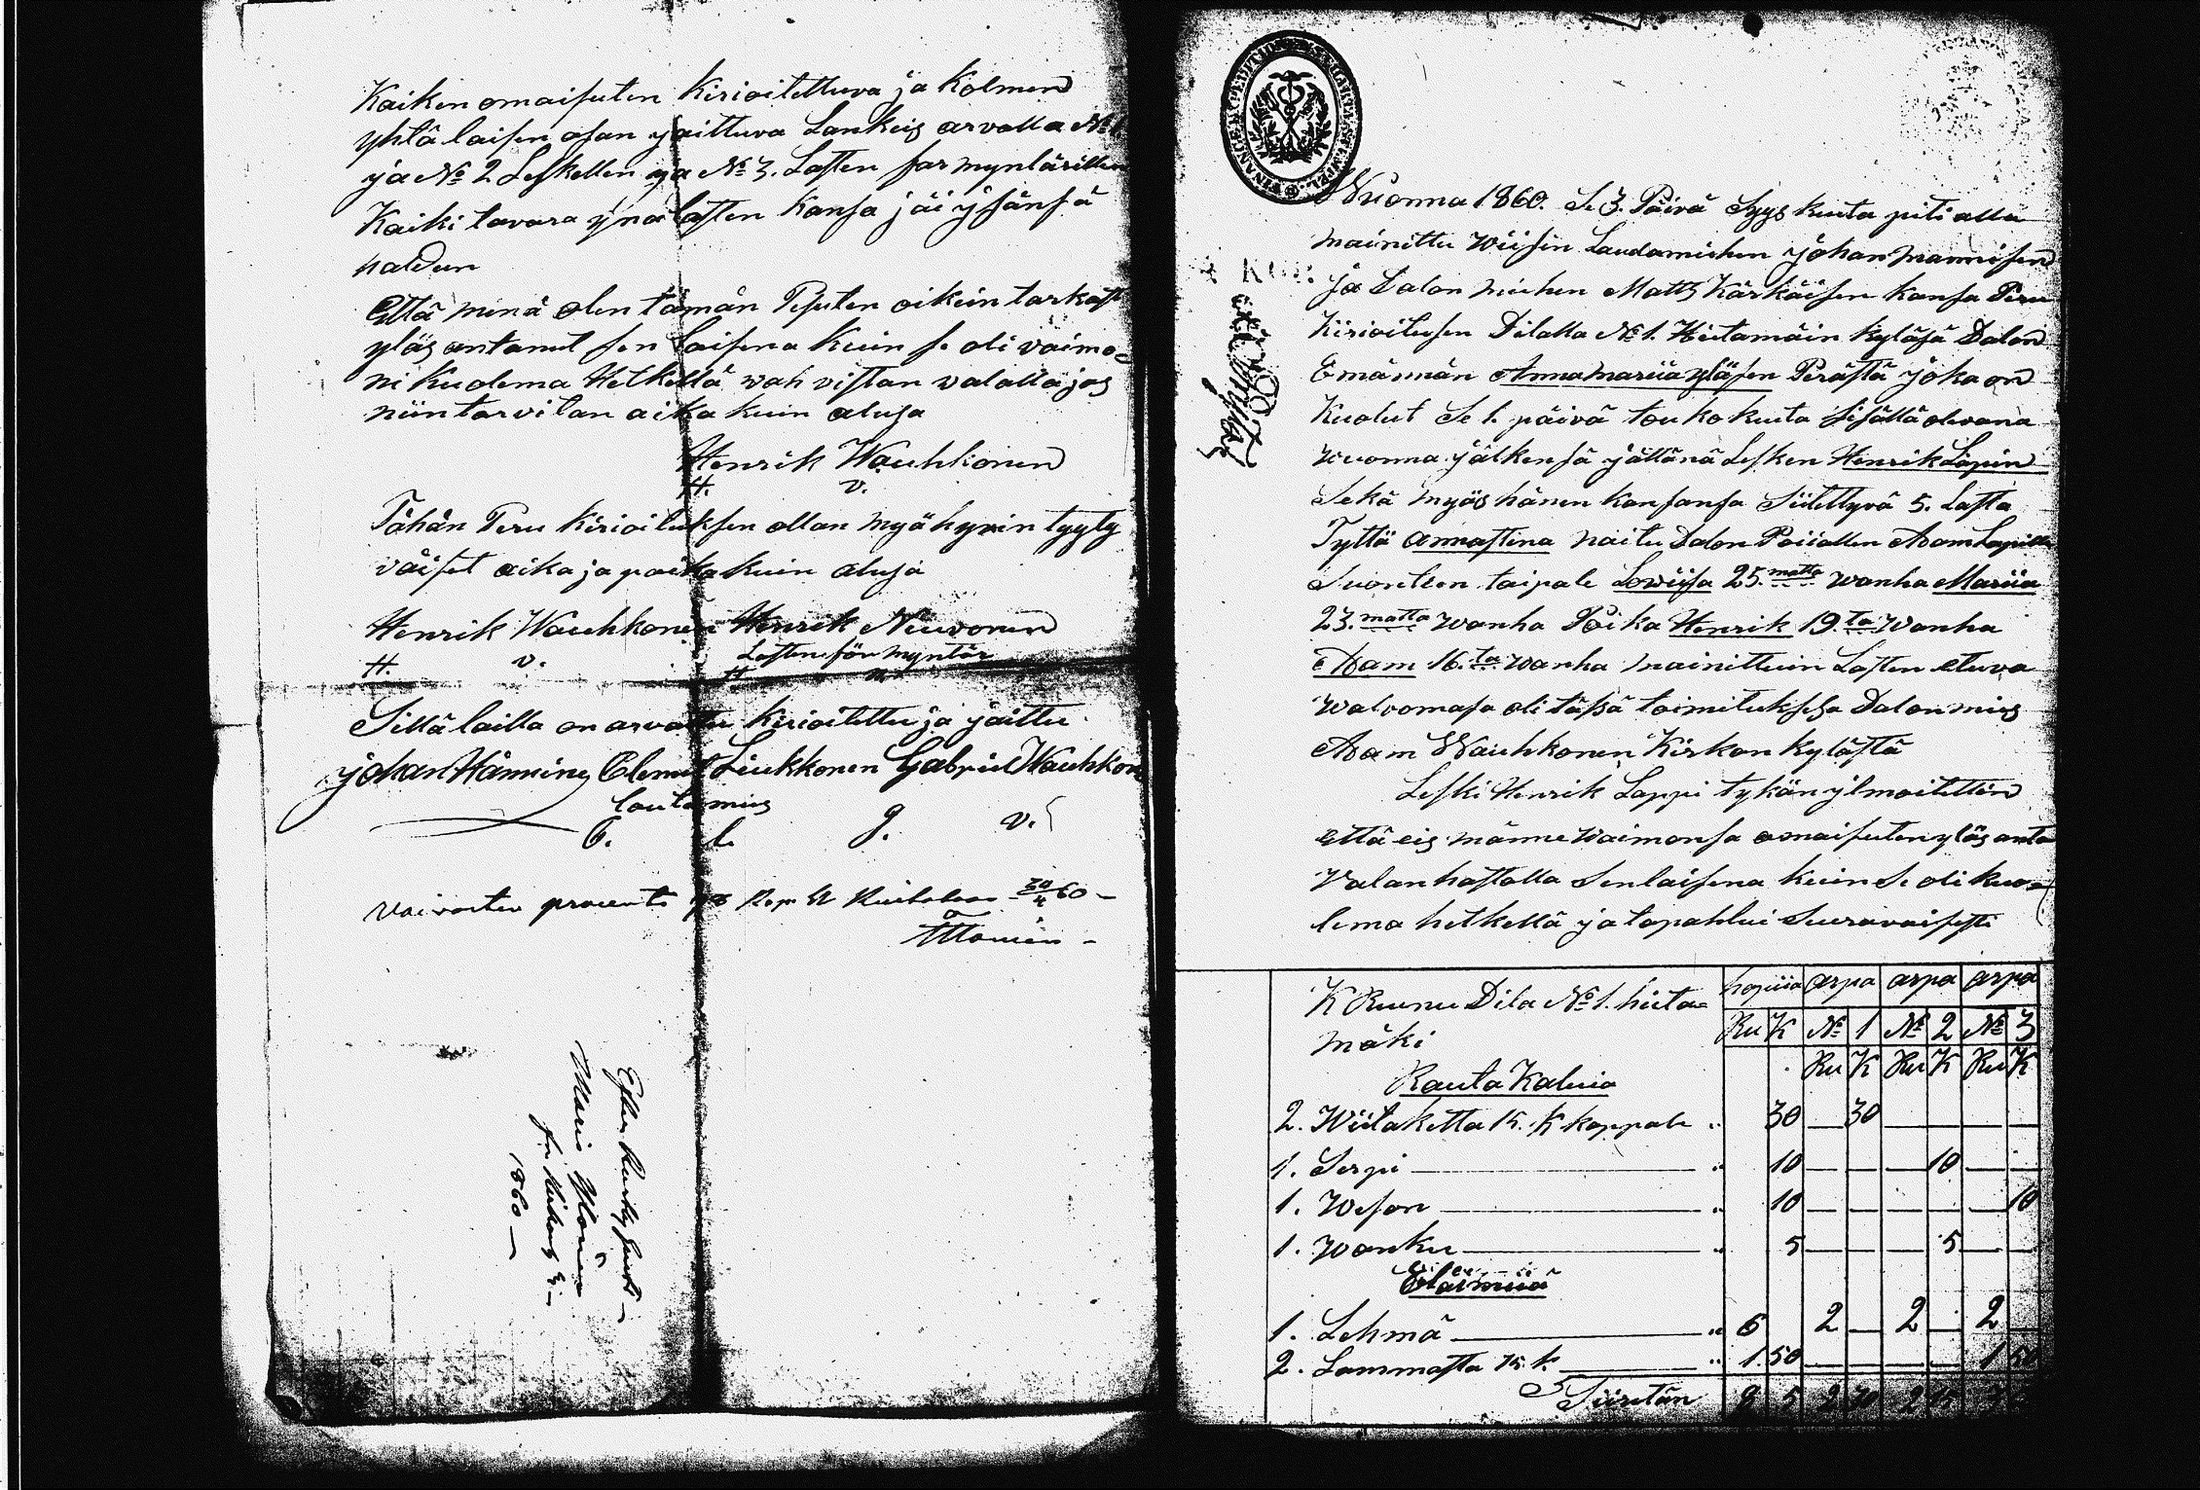 Kaiken omaisuten Kirioitettuva ja Kolmen
yhtä laisen osan jaittuva Lankeis arvolla No 1
ja No 2 Leskellen ja No 3. Lasten
Kaiki tavara ynä lasten Kansa jäi ysänsä
haldun
Että minä olen tämän Pesuten oikein tarkast
ylös antanut sen laisena Kuin se oli vaimo=
ni Kuolema Hetkellä, wahvistan valalla jos
niin tarvitan aika kuin aluja
Henrik Wauhkonen
H. v.
Tähän Peru Kirioituksen ollan myä hyvin tyyty
väiset aika ja paika kuin aluja
Henrik Wauhkonen Henrik Neuvonen
Lasten för myntär
H. v. H. n.
Sillä lailla on arvattu Kirioitettu ja jaittu
johan Hänninen Clemet Liukkonen Gabriel Wauhkon
lautamies
C. l. g. v.
Vaivasten procenti Kop
Efter
1860 —
FINANCE EXPEDITION CHARTÆ STEMPEL
Wuonna 1860. Se 3. Päivä Syys kuuta piti alla
mainittu wiisin Laudamiehen johan manisen
ja Dalon miehen Matts Kärkäisen kansa Peru
Kirioituxen Dilalla No 1. Hietamäin kyläsä Dalon
Emännän Annamariia yläsen Perästä joka on
Kuolut Se 1. päivä touko kuuta sisällä olevana
wuonna jälkensä jättänä Lesken Henrik Lapin
Sekä myös hänen kansansa Siitettyvä 5. Lasta
Tyttö annastina naitu Dalon Poiiallen Adam Lapille
Suonteen taipale Lowiisa 25.matta wanha Mariia
23.matta wanha Poika Henrik 19.ta wanha
Adam 16.ta wanha mainittuin Lasten etuva
walvomasa oli täsä toimituksesa Dalon mies
Adam Wauhkonen Kirkon kylästä
Leski Henrik Lappi tykän ylmoitettin
että eis männe waimonsa omaisuten ylös anta
Valan hastolla Senlaisena kuin Se oli kuo=
lema hetkellä ja tapahtui Seuravaisesti
K Ruunu Dila No 1. hieta= hopiia arpa arpa arpa
mäki Ru K No 1 No 2 No 3
Rauta Kaluia Ru K Ru K Ru K
2. Wiitaketta 15. K kappale " 30 — 30 — — — —
1. Serpi — " 10 — — — 10 — —
1. Weson — " 10 — — — — — 10
1. Wanku — " 5 — — — 5 — —
Eläimiiä
1. Lehmä — " 6 2 — 2 — 2 —
2. Lammasta 75. k. — " 1 50 — — — — 1 50
Siiretän 8 5 2 30 2 15